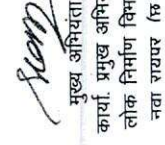 मुख्य अभियंता
कार्या. प्रमुख अभि
लोक निर्माण विभा
नवा रायपुर (छ